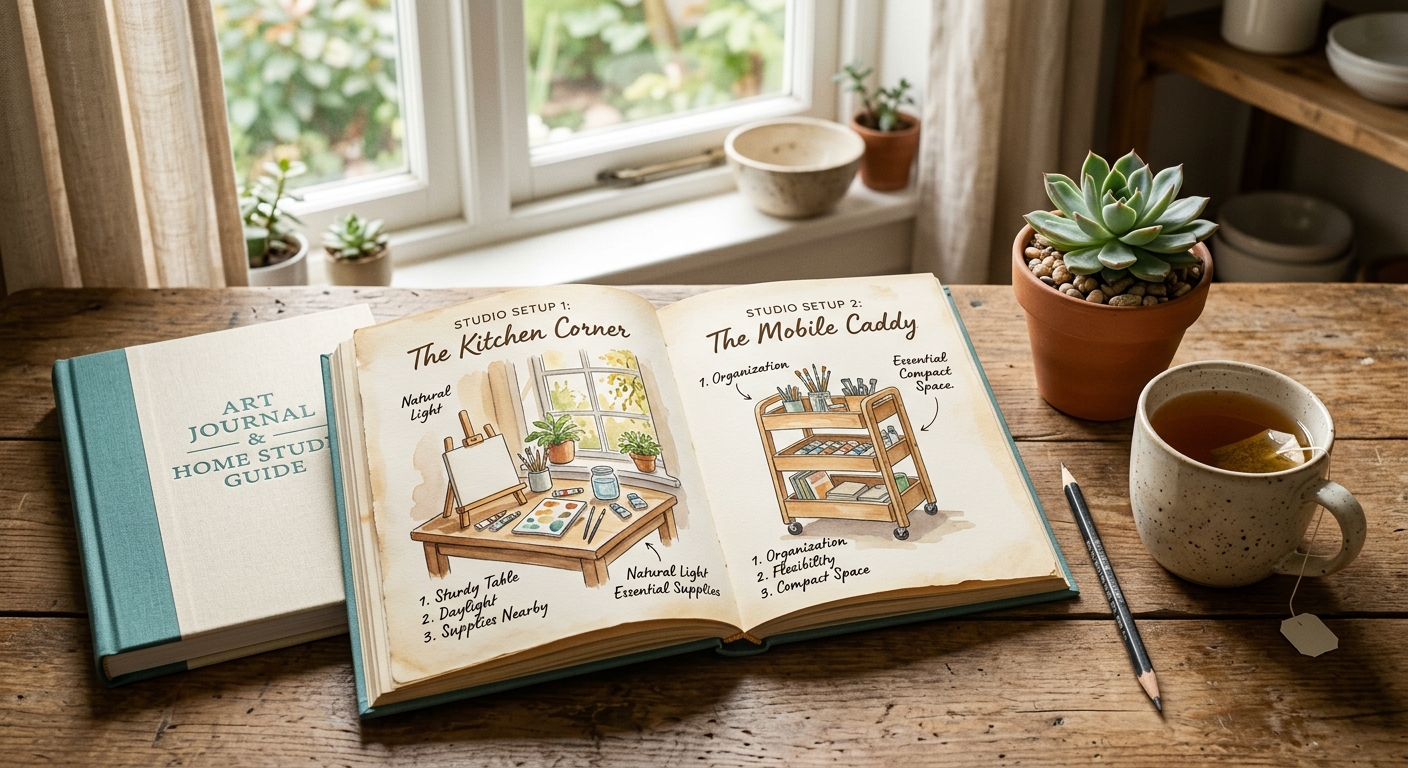 ART
JOURNAL
&
HOME STUD
GUIDE
STUDIO SETUP 1:
The Kitchen Corner
Natural
Light
1. Sturdy Table
2. Daylight
3. Supplies Nearby
Natural Light
Essential Supplies
STUDIO SETUP 2:
The Mobile Caddy
1. Organization
Essential
Compact
Space.
1. Organization
2. Flexibility
3. Compact Space